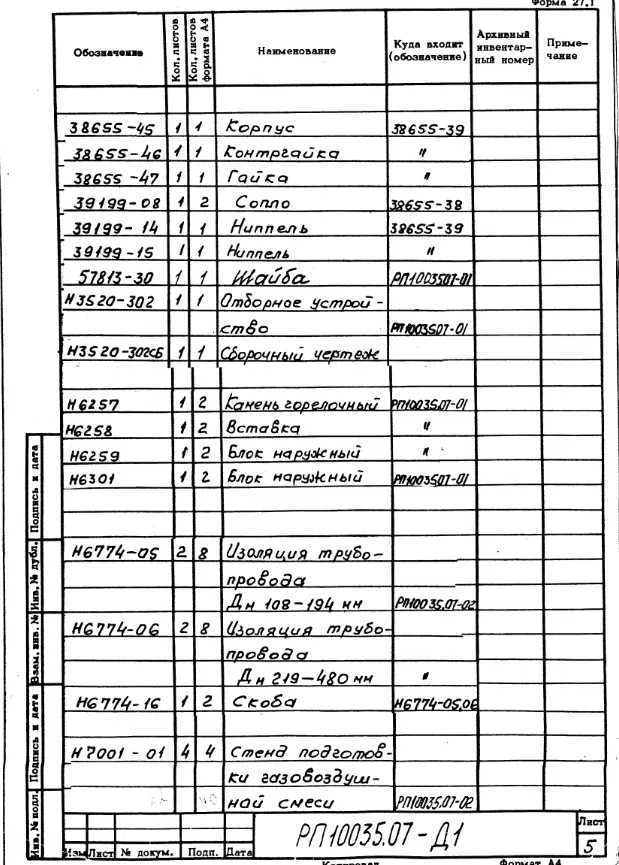 Форма 27.1
Обозначение Кол. листов Кол. листов формата А4 Наименование Куда входит (обозначение) Архивный инвентарный номер Примечание
38655-45 1 1 Корпус 38655-39
38655-46 1 1 Контргайка "
38655-47 1 1 Гайка "
39199-08 1 2 Сопло 38655-38
39199-14 1 1 Ниппель 38655-39
39199-15 1 1 Ниппель "
57813-30 1 1 Шайба РП10035.07-01
Н3520-302 1 1 Отборное устрой-
ство РП10035.07-01
Н3520-302СБ 1 1 Сборочный чертеж
Н6257 1 2 Камень горелочный РП10035.07-01
Н6258 1 2 Вставка "
Н6259 1 2 Блок наружный "
Н6301 1 2 Блок наружный РП10035.07-01
Н6774-05 2 8 Изоляция трубо-
провода
Дн 108-194 мм РП10035.07-02
Н6774-06 2 8 Изоляция трубо-
провода
Дн 219-480 мм "
Н6774-16 1 2 Скоба Н6774-05,06
Н7001-01 4 4 Стенд подготов-
ки газовоздуш-
ной смеси РП10035.07-02
Инв. № подл. Подпись и дата Взам. инв. № Инв. № дубл. Подпись и дата
РП10035.07-Д1
Лист
5
Изм Лист № докум. Подп. Дата
Копировал Формат А4